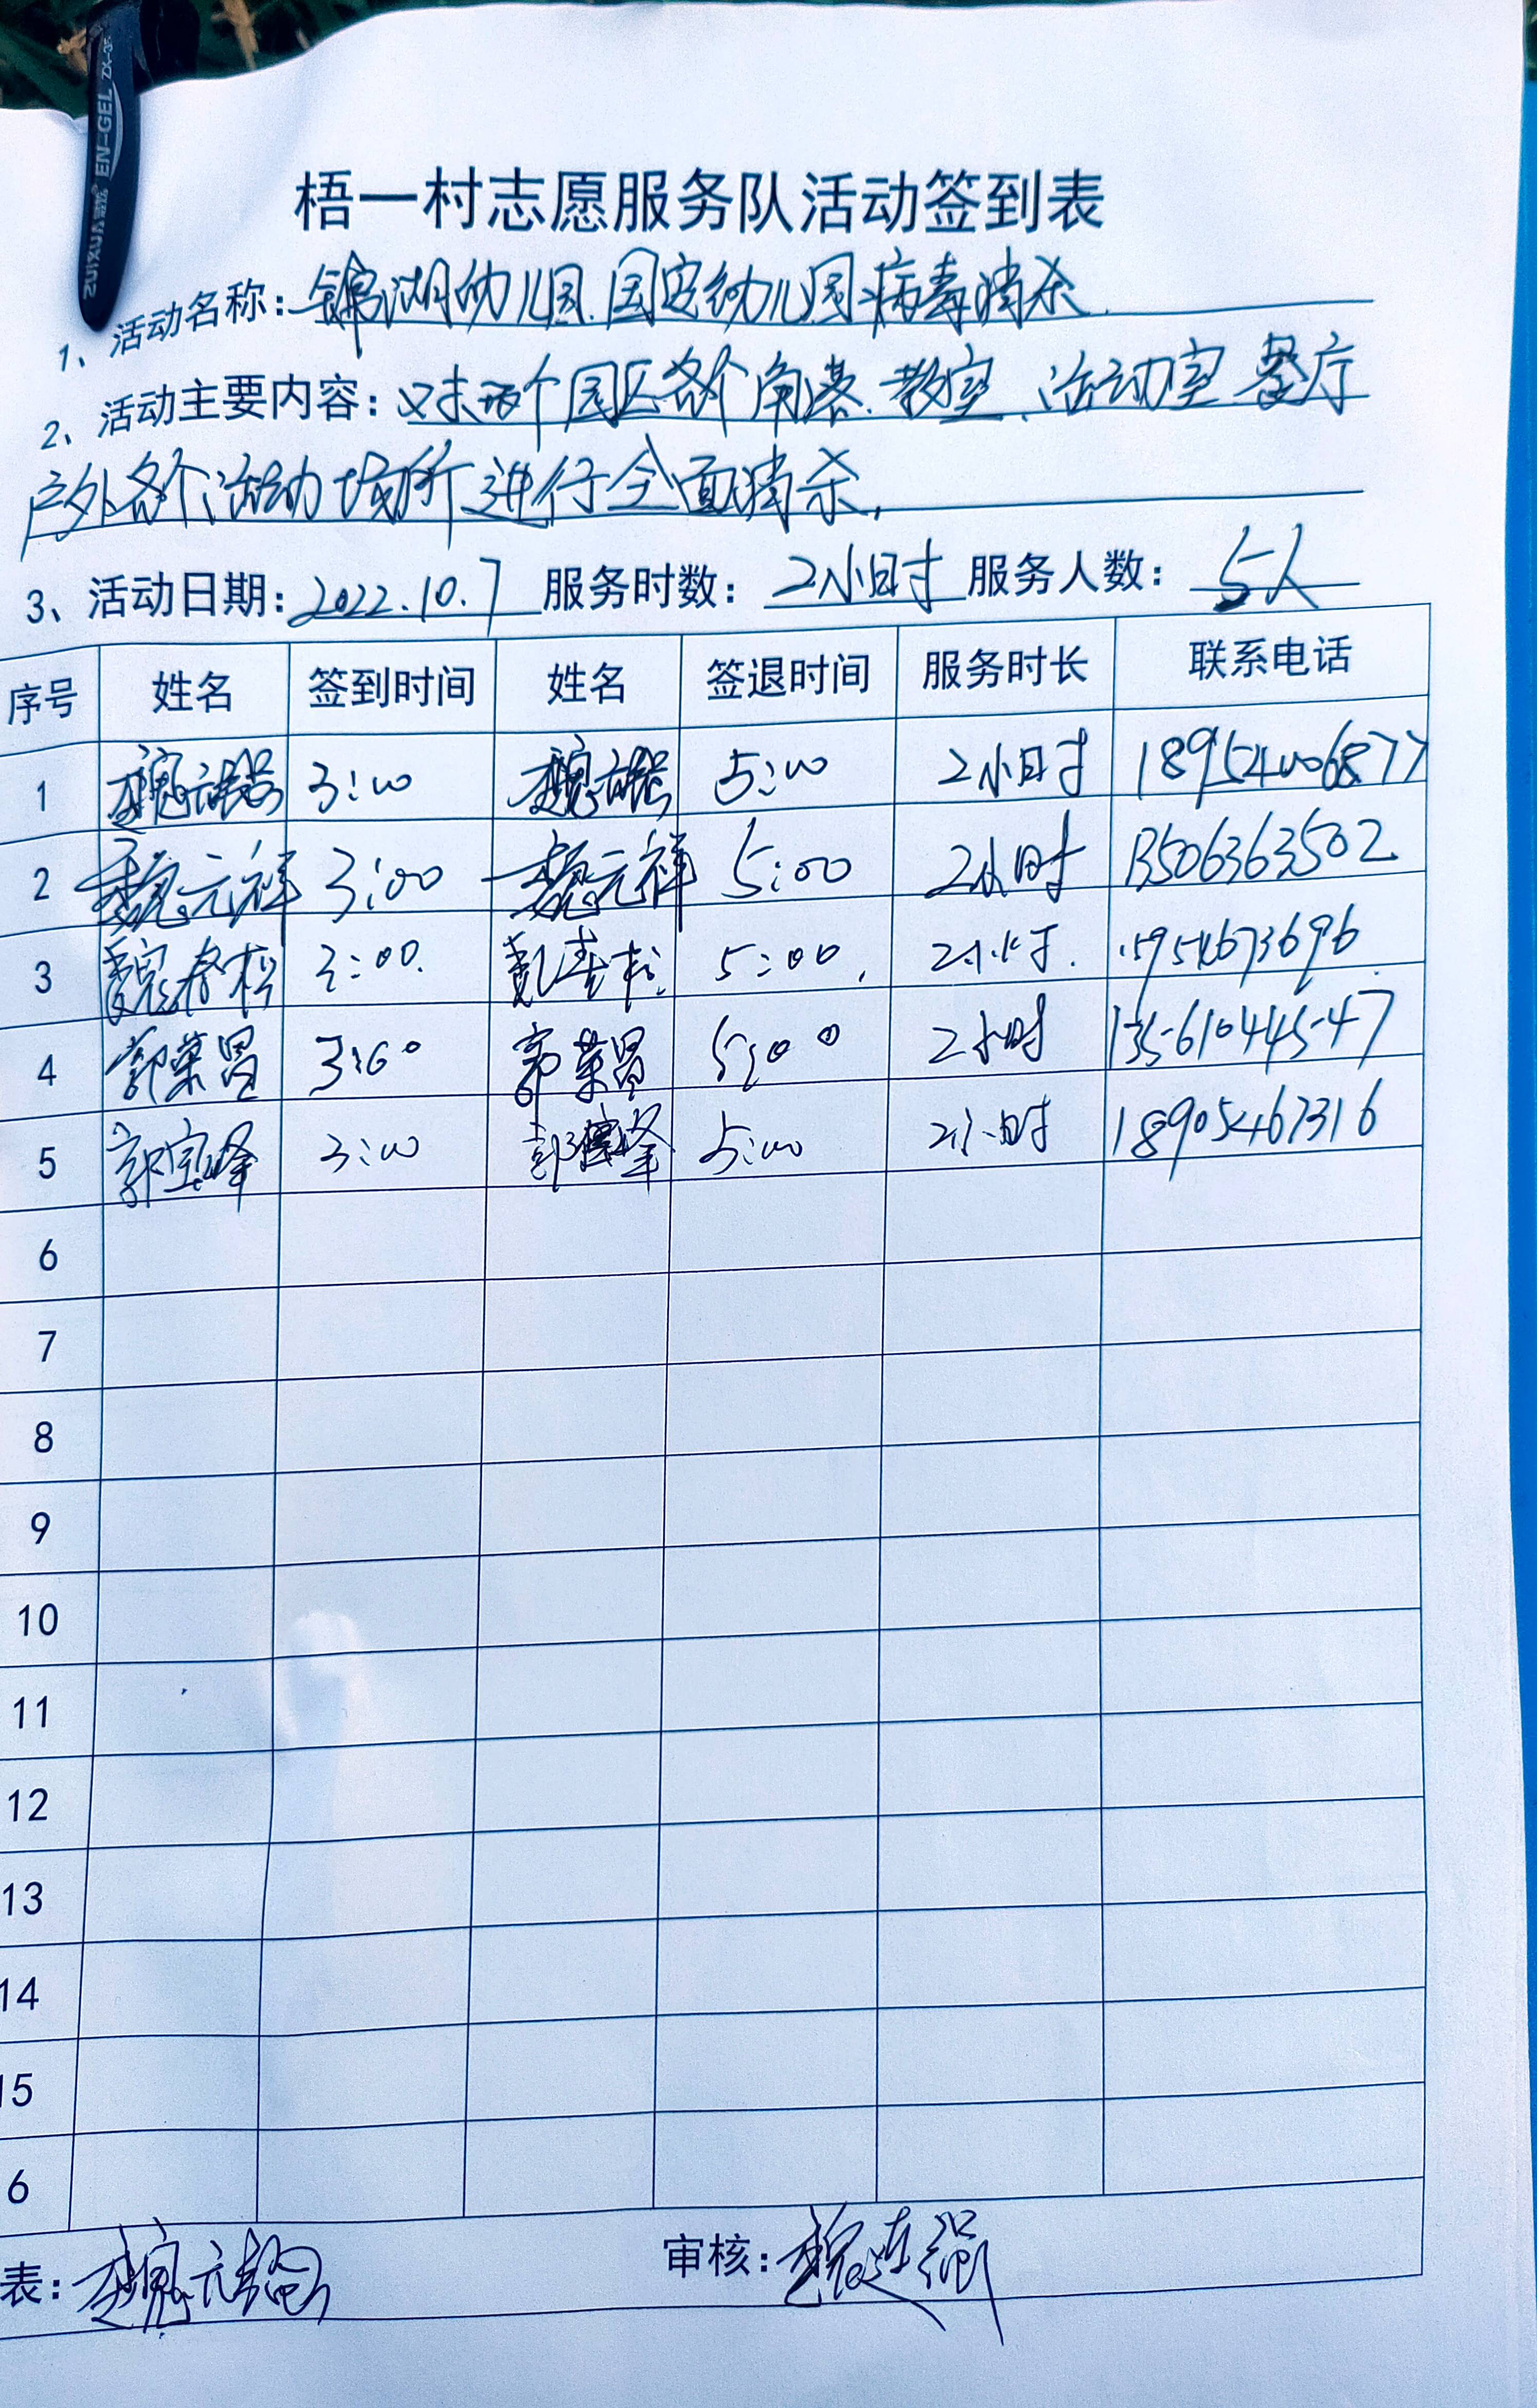 ZUIXUAN EN-GEL ZX-
梧一村志愿服务队活动签到表
1、活动名称：锦湖幼儿园、国安幼儿园病毒消杀
2、活动主要内容：对两个园区各个角落、教室、活动室 餐厅
户外各个活动场所进行全面消杀。
3、活动日期：2022.10.7 服务时数：2小时 服务人数：5人
序号 姓名 签到时间 姓名 签退时间 服务时长 联系电话
1 3:00 5:00 2小时 18954006877
2 魏元祥 3:00 魏元祥 5:00 2小时 13506363502
3 魏春松 3:00. 魏春松 5:00. 2小时. 15954673696
4 郭荣昌 3:00 郭荣昌 5:00 2小时 13561044547
5 郭宝峰 3:00 郭宝峰 5:00 2小时 18905467316
6
7
8
9
10
11
12
13
14
15
6
表： 审核：魏连强